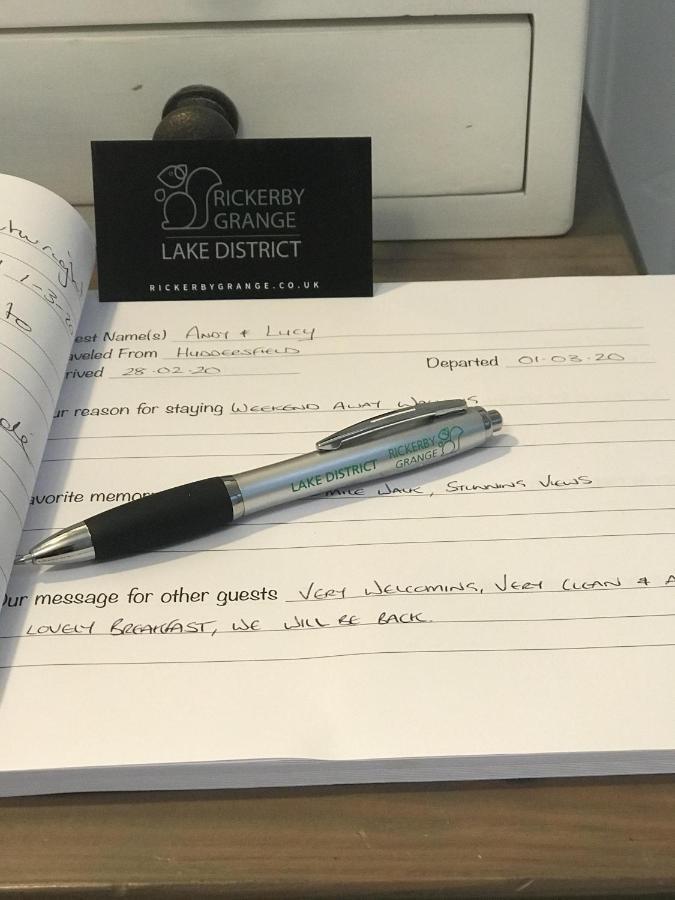 RICKERBY
GRANGE
LAKE DISTRICT
RICKERBYGRANGE.CO.UK
1-3-20
to
est Name(s) ANDY & LUCY
aveled From HUDDERSFIELD
rived 28-02-20 Departed 01-03-20
ur reason for staying WEEKEND AWAY
LAKE DISTRICT RICKERBY
GRANGE
avorite memor MILE WALK, STUNNING VIEWS
ur message for other guests VERY WELCOMING, VERY CLEAN & A
LOVELY BREAKFAST, WE WILL BE BACK.